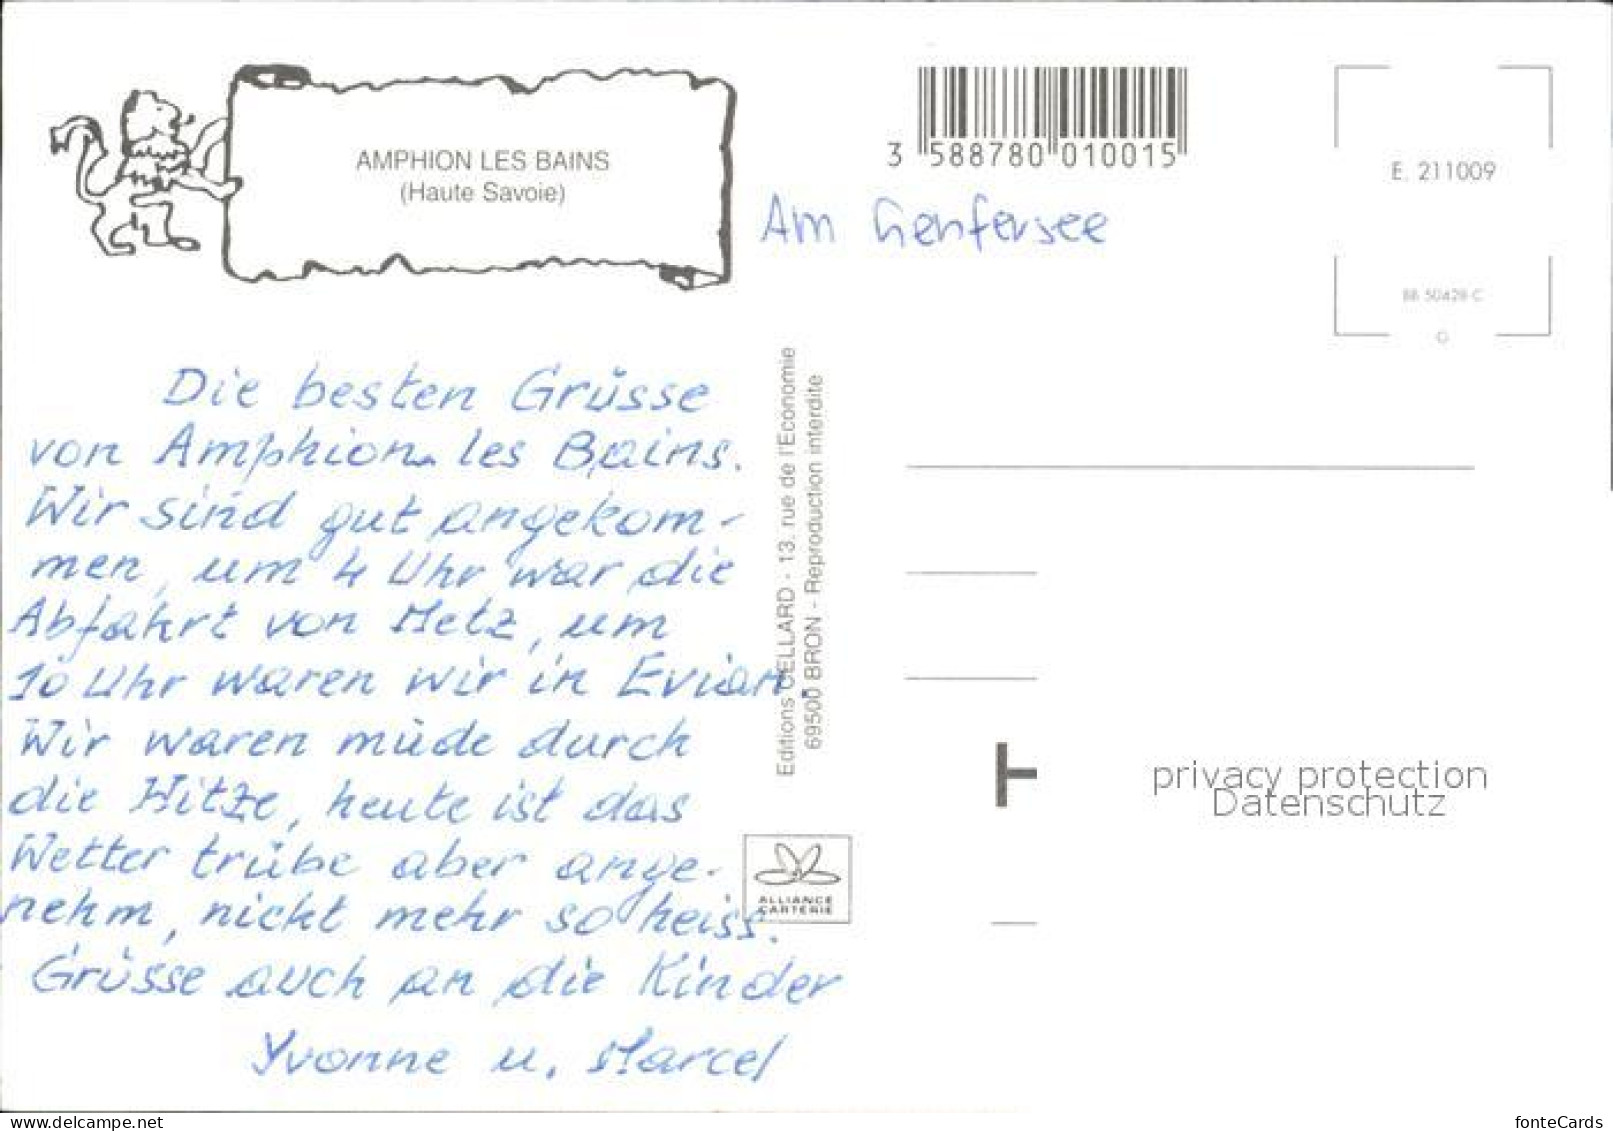 AMPHION LES BAINS
(Haute Savoie)
3 588780 010015
E. 211009
BB 50428 C
Am Genfersee
Die besten Grüsse
von Amphion les Bains.
Wir sind gut angekom-
men, um 4 Uhr war die
Abfahrt von Metz, um
10 Uhr waren wir in Evian.
Wir waren müde durch
die Hitze, heute ist das
Wetter trübe aber ange-
nehm, nicht mehr so heiss.
Grüsse auch an die Kinder
Yvonne u. Marcel
Editions CELLARD - 13, rue de l'Economie
69500 BRON - Reproduction interdite
ALLIANCE
CARTERIE
privacy protection
Datenschutz
my.delcampe.net
fonteCards